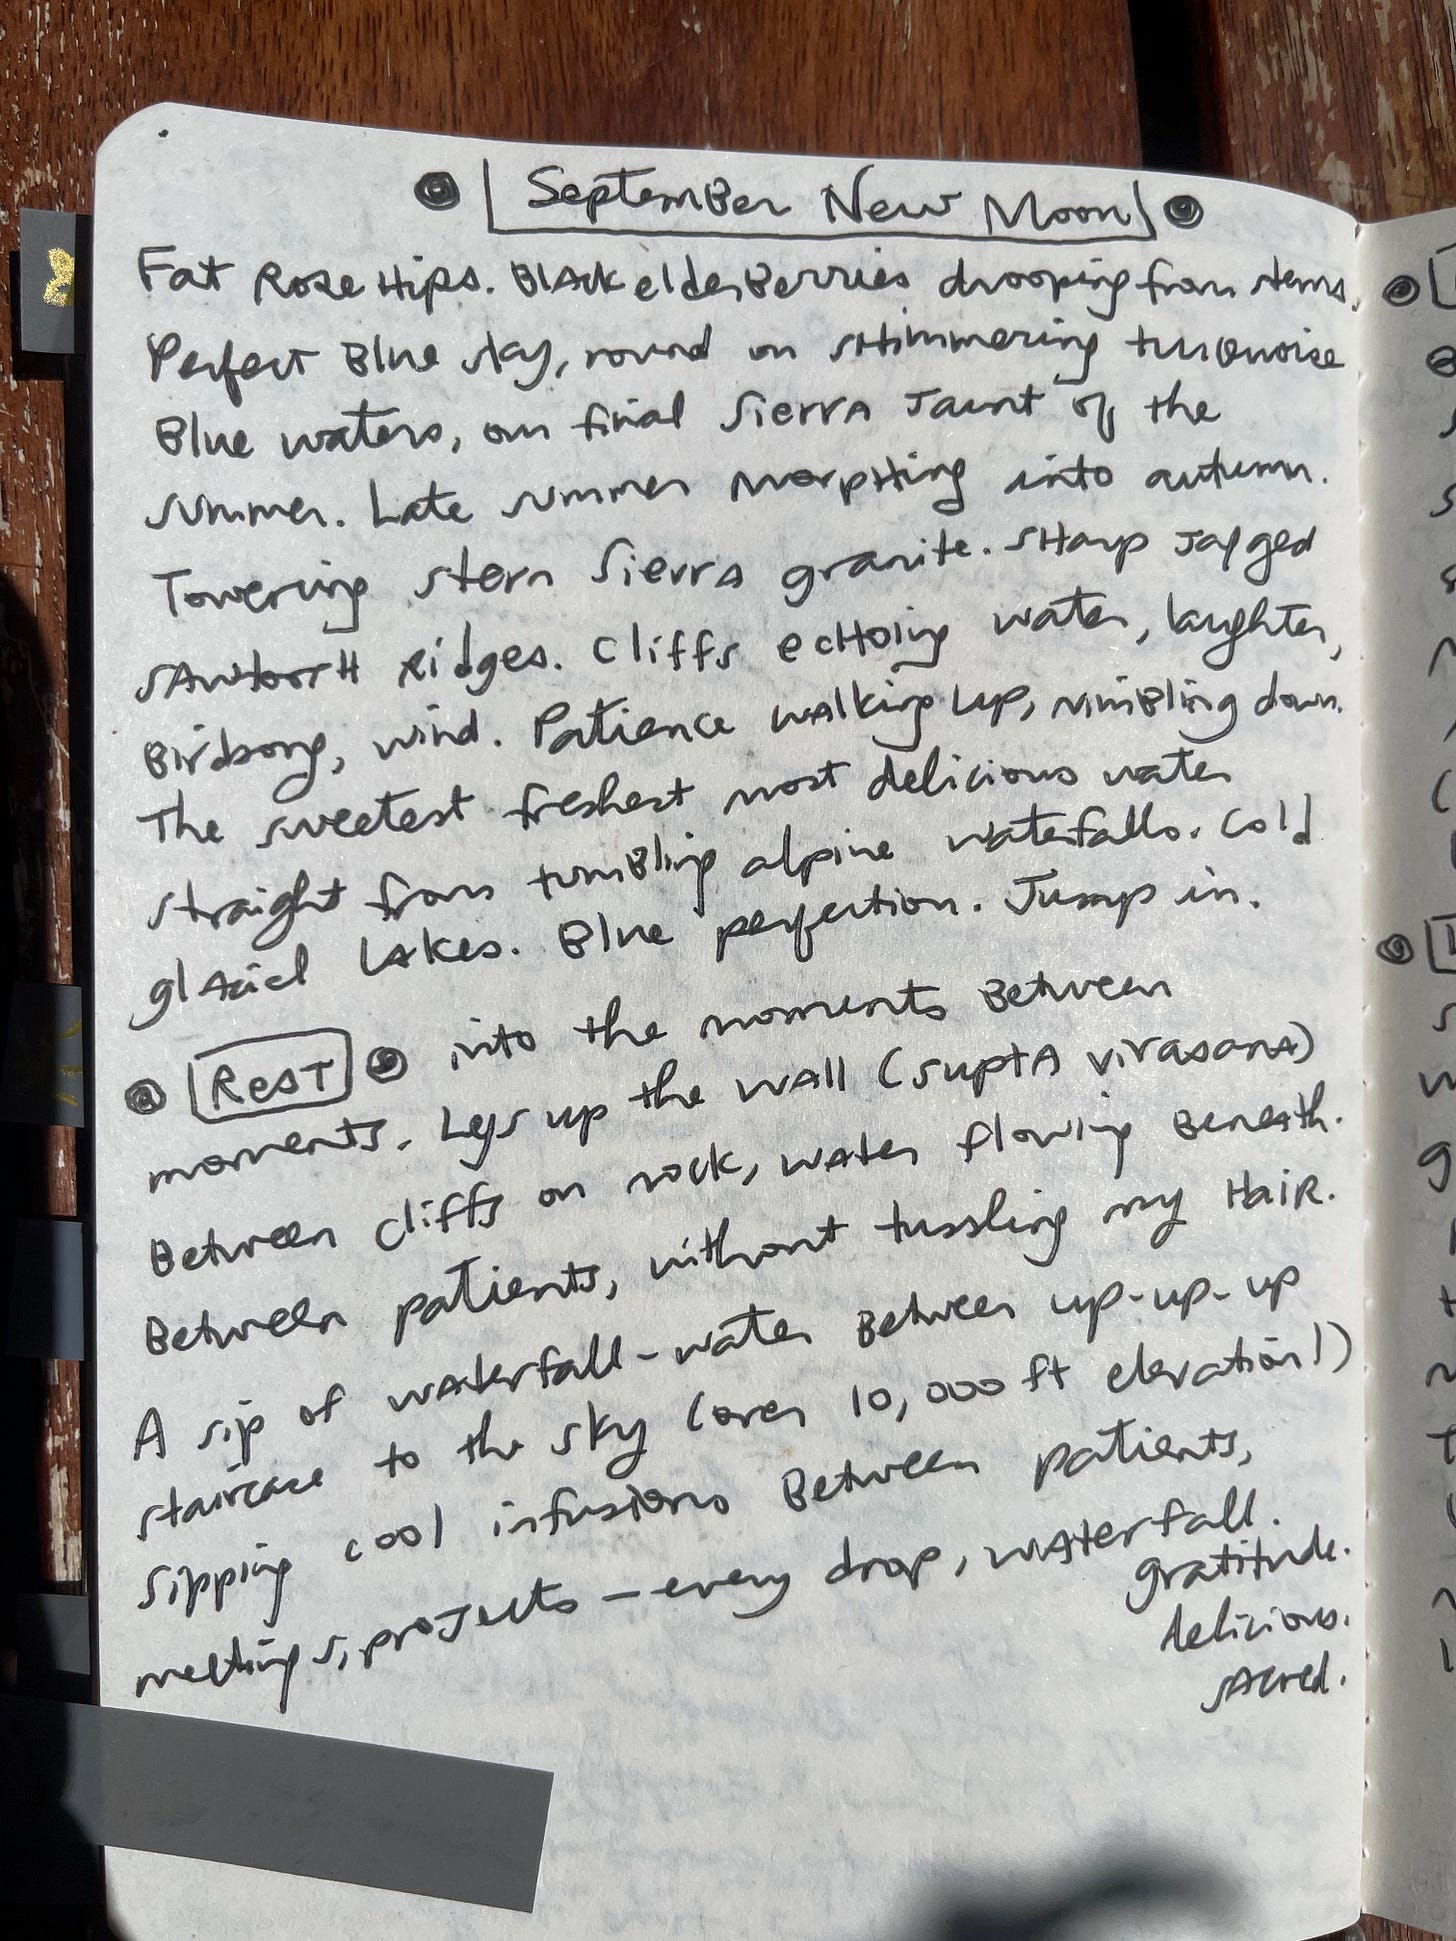 September New Moon
Fat Rose Hips. Black elderberries drooping from stems.
Perfect Blue sky, round on shimmering turquoise
Blue waters, our final Sierra Jaunt of the
summer. Late summer morphing into autumn.
Towering stern Sierra granite. Sharp Jagged
sawtooth ridges. Cliffs echoing water, laughter,
Birdsong, wind. Patience walking up, nimbling down.
The sweetest freshest most delicious water
straight from tumbling alpine waterfalls. Cold
glacial lakes. Blue perfection. Jump in.
Rest into the moments Between
moments. Legs up the wall (supta virasana)
Between cliffs on rock, water flowing Beneath.
Between patients, without tussling my Hair.
A sip of waterfall-water Between up-up-up
staircase to the sky (over 10,000 ft elevation!)
Sipping cool infusions Between patients,
meetings, projects - every drop, waterfall.
gratitude.
delicious.
sacred.